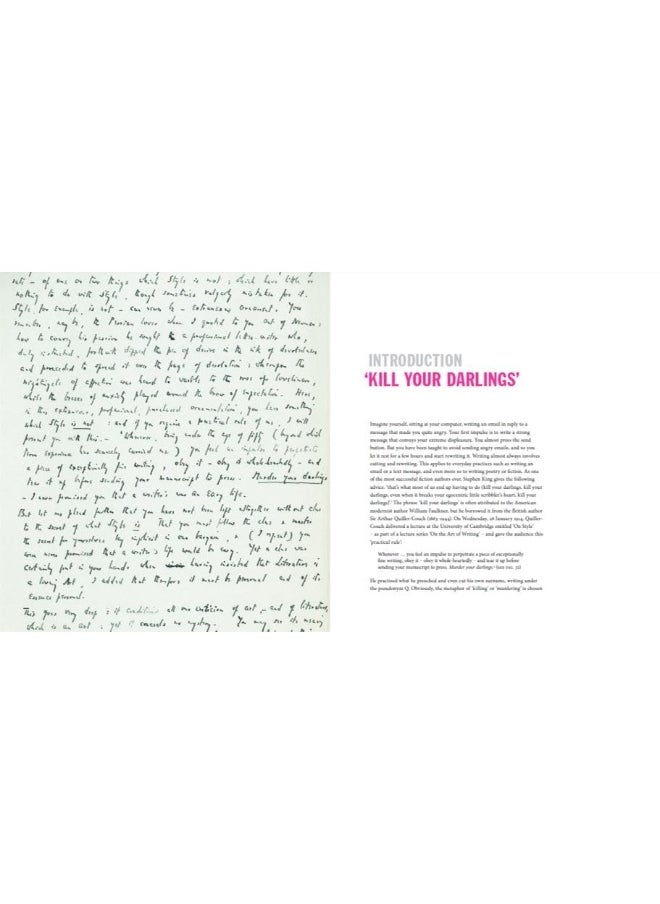 of one or two things which Style is not ; which have little or
nothing to do with Style, though sometimes vulgarly mistaken for it.
Style, for example, is not – can never be – extraneous Ornament. You
remember, may be, the Persian lover whom I quoted to you out of Newman :
how to convey his passion he sought a professional letter-writer who,
duly instructed, forthwith dipped the pen of desire in the ink of devotedness
and proceeded to spread it over the page of desolation : whereupon the
nightingale of affection was heard to warble to the rose of loveliness,
while the breeze of anxiety played around the brow of expectation. Here,
in this extraneous, professional, purchased ornamentation, you have something
which Style is not : and if you require a practical rule of me, I will
present you with this. – 'Whenever you feel an impulse to perpetrate
a piece of exceptionally fine writing, obey it – obey it wholeheartedly – and
tear it up before sending your manuscript to press. Murder your darlings
– I never promised you that a writer's was an easy life.
But let me plead further that you have not been left altogether without clue
to the secret of what Style is. That you must
the secret for yourselves lay implicit in our bargain, (I repeat) you
were never promised that a writer's life would be easy. Yet a clue was
certainly put in your hands when having insisted that Literature is
a living Art, I added that therefore it must be personal and of its
essence personal.
This goes very deep : it conditions all our criticism of art, and of literature,
which is an art : yet it conceals no mystery. You may see its meaning
INTRODUCTION
‘KILL YOUR DARLINGS’
Imagine yourself, sitting at your computer, writing an email in reply to a
message that made you quite angry. Your first impulse is to write a strong
message that conveys your extreme displeasure. You almost press the send
button. But you have been taught to avoid sending angry emails, and so you
let it rest for a few hours and start rewriting it. Writing almost always involves
cutting and rewriting. This applies to everyday practices such as writing an
email or a text message, and even more so to writing poetry or fiction. As one
of the most successful fiction authors ever, Stephen King gives the following
advice, ‘that’s what most of us end up having to do (kill your darlings, kill your
darlings, even when it breaks your egocentric little scribbler’s heart, kill your
darlings)’.¹ The phrase ‘kill your darlings’ is often attributed to the American
modernist author William Faulkner, but he borrowed it from the British author
Sir Arthur Quiller-Couch (1863-1944). On Wednesday, 28 January 1914, Quiller-
Couch delivered a lecture at the University of Cambridge entitled ‘On Style’
– as part of a lecture series ‘On the Art of Writing’ – and gave the audience this
‘practical rule’:
Whenever … you feel an impulse to perpetrate a piece of exceptionally
fine writing, obey it – obey it whole-heartedly – and tear it up before
sending your manuscript to press. Murder your darlings.² (see FIG. 32)
He practised what he preached and even cut his own surname, writing under
the pseudonym Q. Obviously, the metaphor of ‘killing’ or ‘murdering’ is chosen